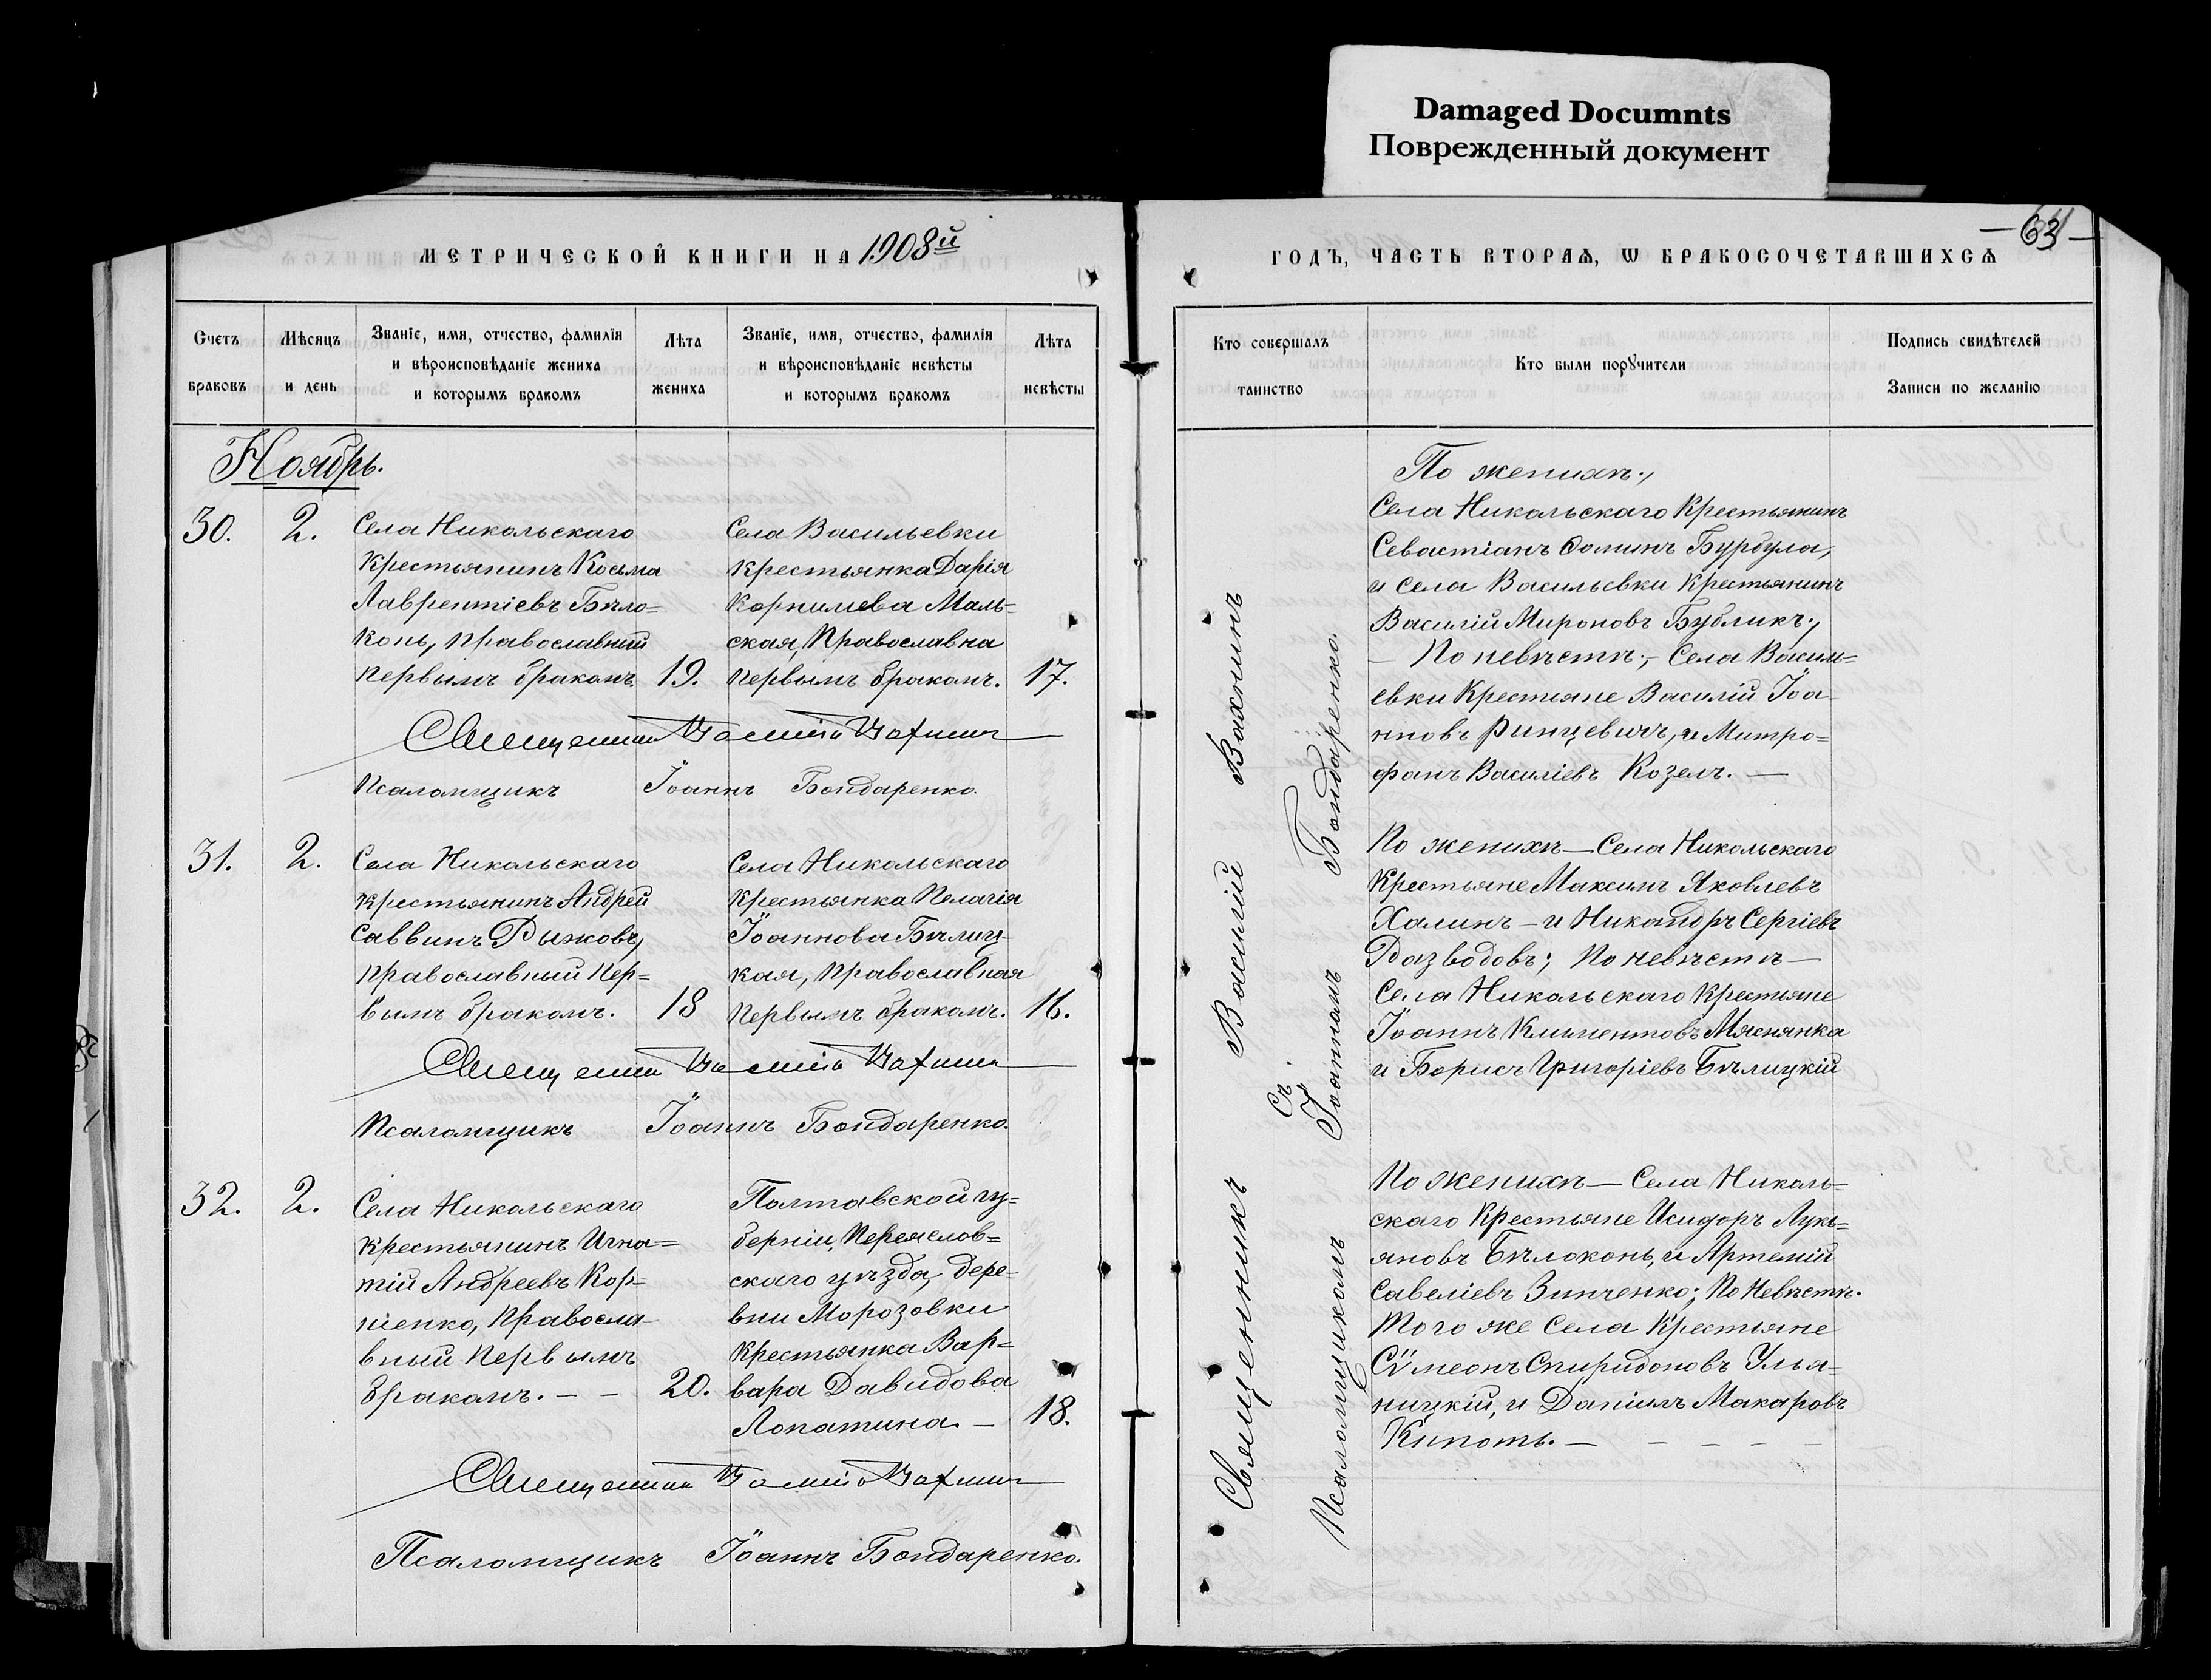 Damaged Documnts
Поврежденный документ
МЕТРИЧЕСКОЙ КНИГИ НА 1908й
Счетъ браковъ
Мѣсяцъ и день
Званіе, имя, отчество, фамилія
и вѣроисповѣданіе жениха
и которымъ бракомъ
Лѣта жениха
Званіе, имя, отчество, фамилія
и вѣроисповѣданіе невѣсты
и которымъ бракомъ
Лѣта невѣсты
Ноябрь.
30.
2.
Села Никольскаго
Крестьянинъ Косьма
Лаврентіевъ Бѣло=
конь, Православный
Первымъ бракомъ.
19.
Села Васильевки
Крестьянка Дарія
Корнилиева Маль=
ская, Православна
Первымъ бракомъ.
17.
Священникъ Василій Вахнинъ
Псаломщикъ Іоаннъ Бондаренко.
31.
2.
Села Никольскаго
Крестьянинъ Андрей
Саввинъ Рыжовъ,
Православный Пер=
вымъ бракомъ.
18
Села Никольскаго
Крестьянка Пелагія
Іоаннова Бѣлиц-
кая, Православная
Первымъ бракомъ.
16.
Священникъ Василій Вахнинъ
Псаломщикъ Іоаннъ Бондаренко.
32.
2.
Села Никольскаго
Крестьянинъ Игна=
тій Андреевъ Кор-
ніенко, Правосла-
вный Первымъ
бракомъ. – –
20.
Полтавской гу=
берніи, Переяслов=
скаго уѣзда, дере=
вни Морозовки
Крестьянка Вар=
вара Давидова
Лопатина. –
18.
Священникъ Василій Вахнинъ
Псаломщикъ Іоаннъ Бондаренко.
– 63 –
ГОДЪ, ЧАСТЬ ВТОРАѦ, Ѡ БРАКОСОЧЕТАВШИХСѦ
Кто совершалъ таинство
Кто были порꙋчители
Подпись свидѣтелей
Записи по желанію
Священникъ Василій Вахнинъ
Съ
Псаломщикомъ Іоанномъ Бондаренко.
По женихѣ.,
Села Никольскаго Крестьянинъ
Севастіанъ Ѳоминъ Бурбула,
и села Васильевки Крестьянинъ
Василій Мироновъ Бубликъ.,
– По невѣстѣ; – Села Василь=
евки Крестьяне Василій Іоа-
нновъ Ринцевичъ, и Митро=
фанъ Василіевъ Козелъ. –
По женихѣ – Села Никольскаго
Крестьяне Максимъ Яковлевъ
Халинъ – и Никандръ Сергіевъ
Разводовъ; По невѣстѣ –
Села Никольскаго Крестьяне
Іоаннъ Климентовъ Мяснянка
и Борисъ Григоріевъ Бѣлицкій
По женихѣ – Села Николь=
скаго Крестьяне Исидоръ Лукь=
яновъ Бѣлоконь, и Артемій
Савеліевъ Зинченко; По Невѣстѣ.
Того же Села Крестьяне
Сѵмеонъ Спиридоновъ Улья-
ницкій, и Даніилъ Макаровъ
Кипоть. – – – – –